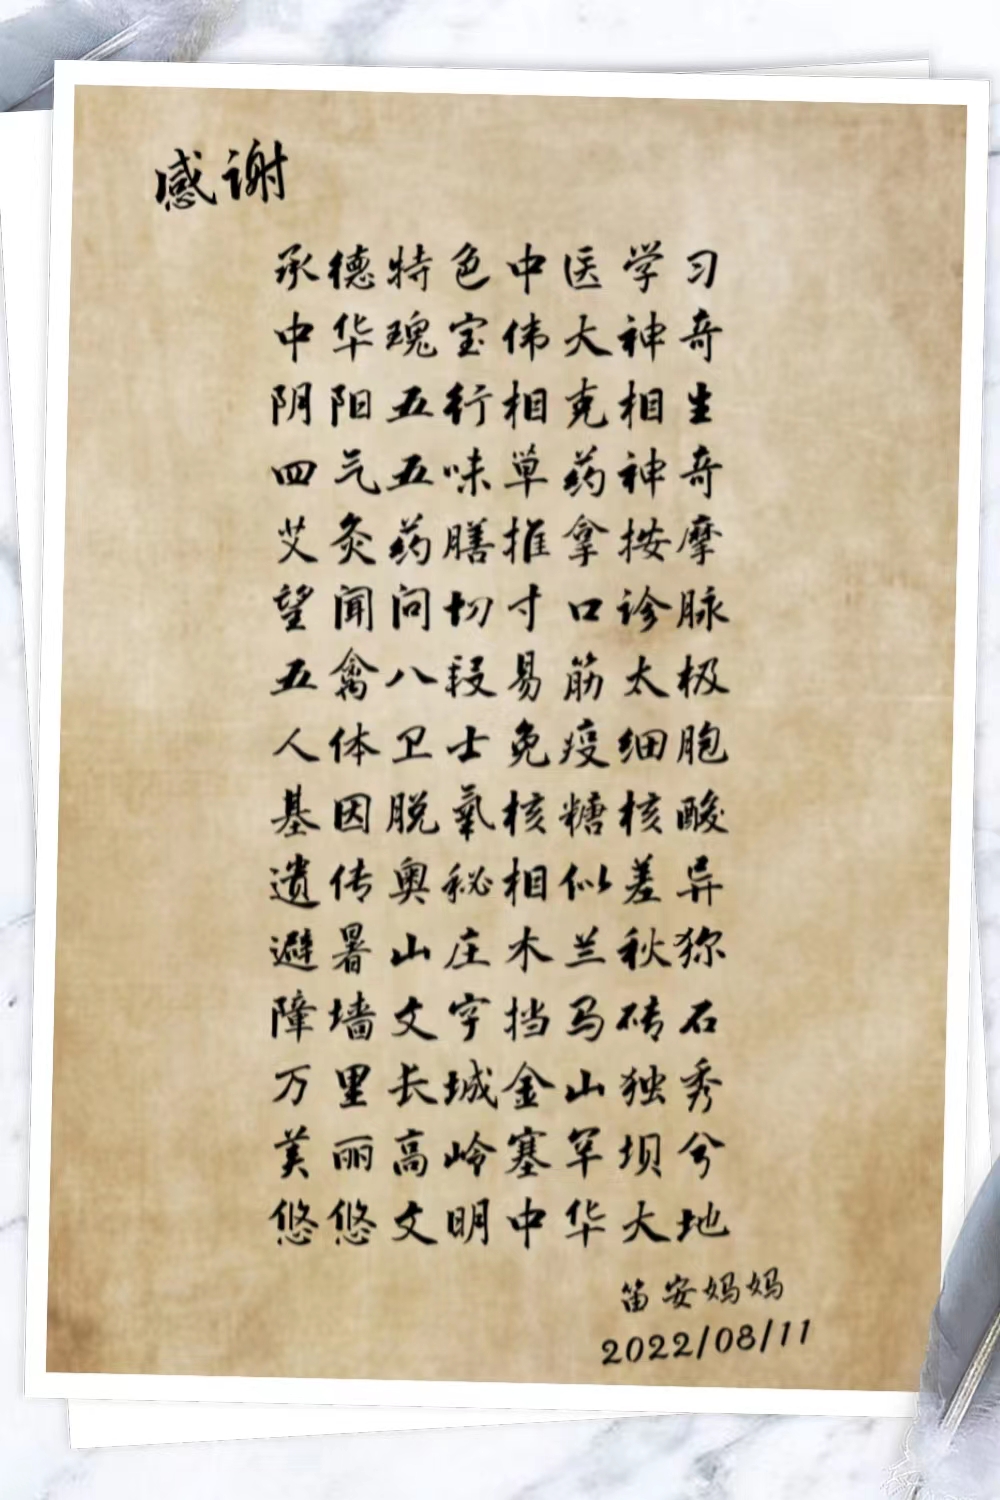 感谢
承德特色中医学习
中华瑰宝伟大神奇
阴阳五行相克相生
四气五味草药神奇
艾灸药膳推拿按摩
望闻问切寸口诊脉
五禽八段易筋太极
人体卫士免疫细胞
基因脱氧核糖核酸
遗传奥秘相似差异
避暑山庄木兰秋狝
障墙文字挡马砖石
万里长城金山独秀
美丽高岭塞罕坝兮
悠悠文明中华大地
笛安妈妈
2022/08/11